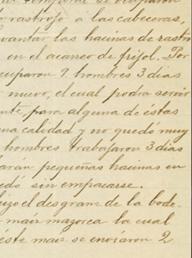 rastrojo á las cabeceras,
vantar las hacinas de rastro
en el acarreo de frijol. Por
cuparon 9 hombres 3 dias
nuevo, el cual podra servir
nte, para alguna de éstas
na calidad y no quedo muy
hombres trabajaron 3 dias
arán pequeñas hacinas en
edó sin empacarse.
hizo el desgrane de la bode-
maiz mazorca la cual
éste maiz se enviaron 2